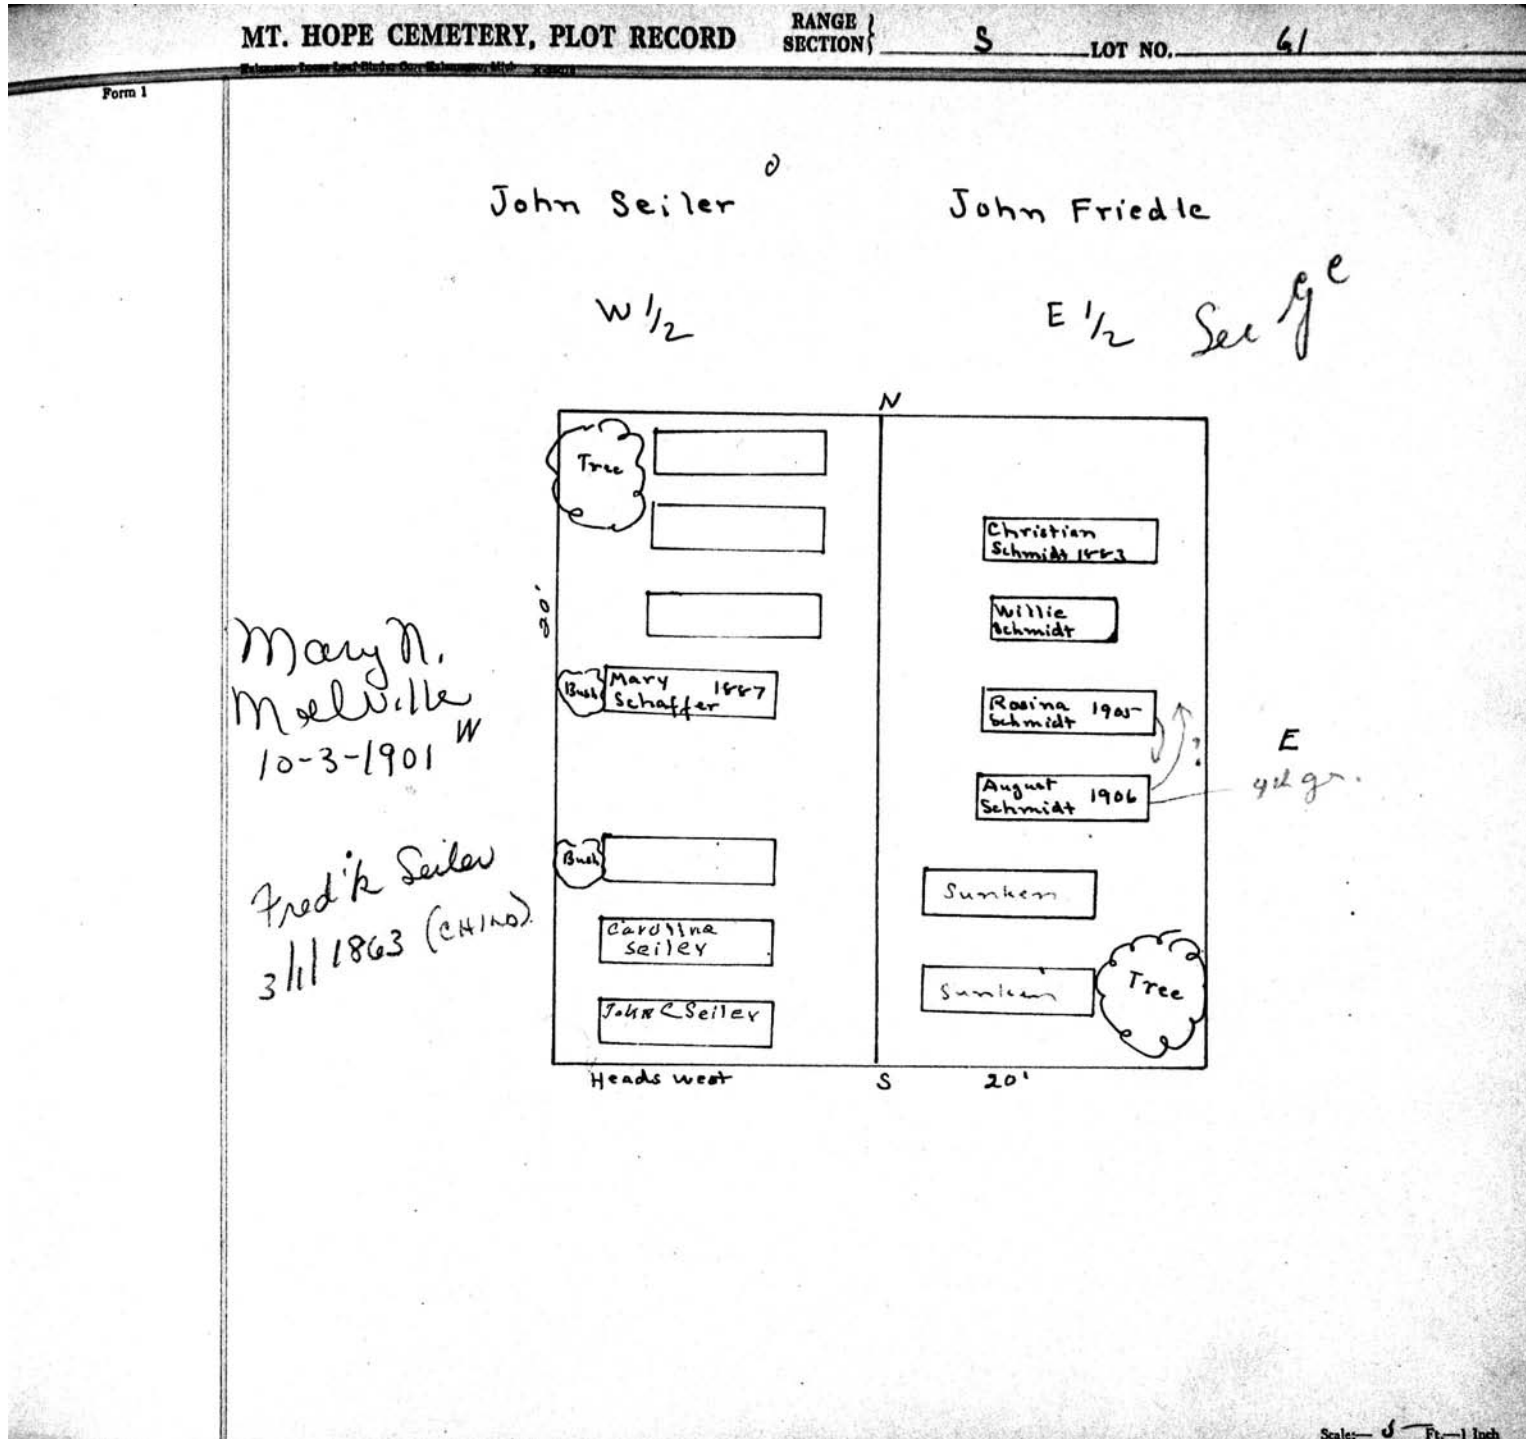 MT. HOPE CEMETERY, PLOT RECORD
RANGE
SECTION
S
LOT NO. 61
Form 1
John Seiler
John Friedle
W 1/2
E 1/2 See
N
Tree
Christian
Schmidt 1883
20'
Willie
Schmidt
Mary N.
Melville
10-3-1901 W
Bush
Mary 1887
Schaffer
Rosina 1905
Schmidt
?
August 1906
Schmidt
E
4th gr.
Fred'k Seiler
3/1/1863 (CHILD).
Bush
Sunken
Carolina
Seiler
Sunken
Tree
John C Seiler
Heads west
S
20'
Scale:— 5 Ft.—1 Inch